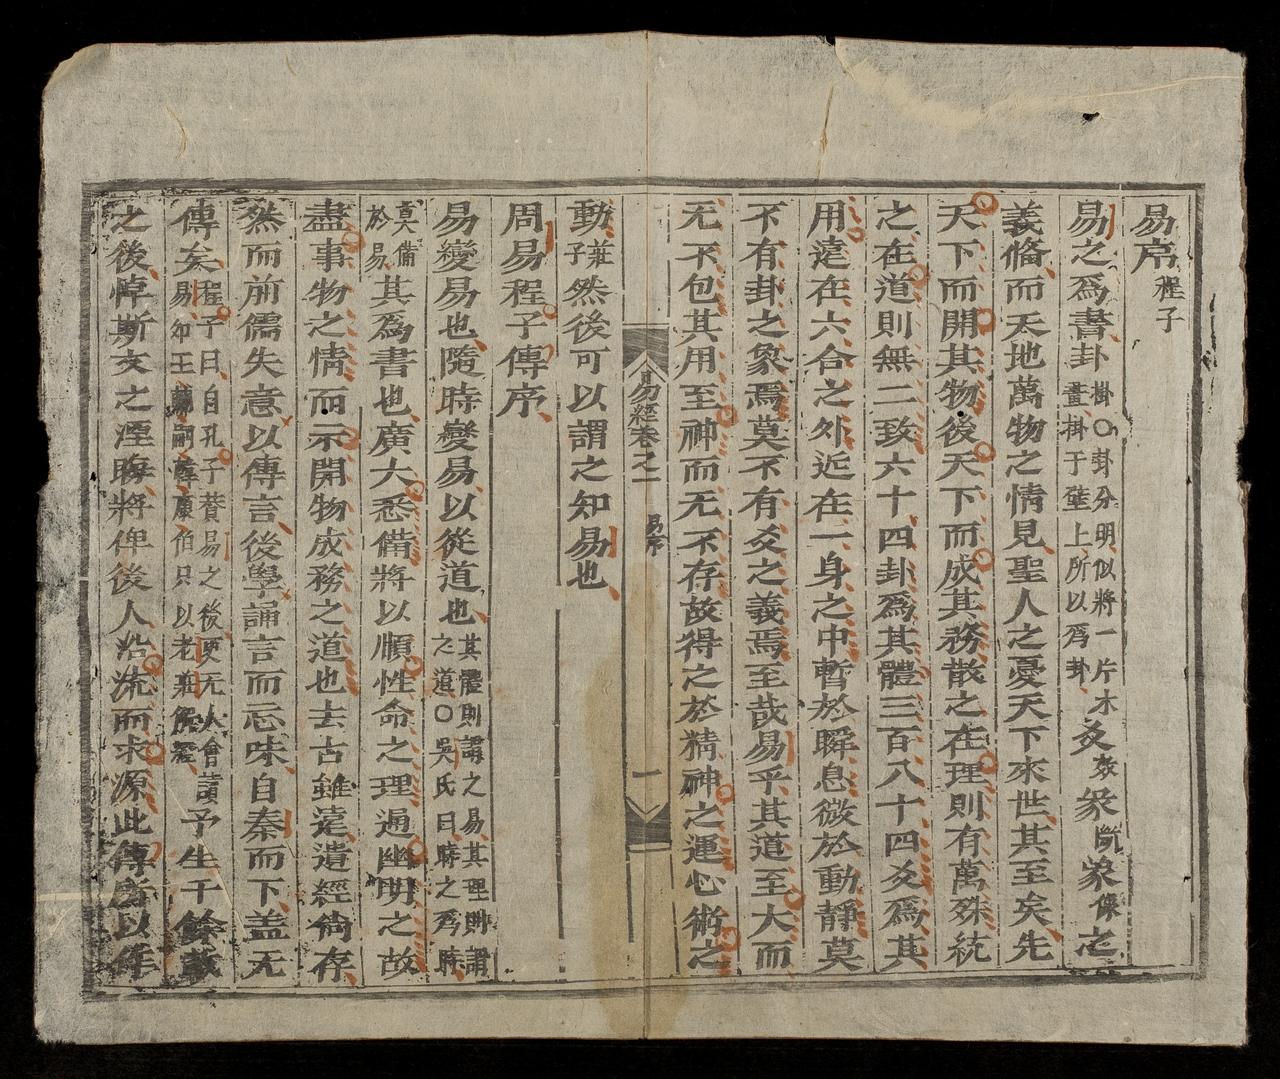 易序程子
易之爲書卦掛〇卦分明似將一片木畫掛于壁上所以爲卦爻彖象之
義俻而天地萬物之情見聖人之憂天下來世其至矣先
天下而開其物後天下而成其務散之在理則有萬殊統
之在道則無二致六十四卦爲其體三百八十四爻爲其
用遠在六合之外近在一身之中暫於瞬息微於動靜莫
不有卦之象焉莫不有爻之義焉至哉易乎其道至大而
无不包其用至神而无不存故得之於精神之運心術之
動莊子然後可以謂之知易也
易經卷之一 易序 一
周易程子傳序
易變易也隨時變易以從道也其體則謂之易其理則謂之道〇吳氏曰時之爲時
莫備於易其爲書也廣大悉備將以順性命之理通幽明之故
盡事物之情而示開物成務之道也去古雖遠遺經尙存
然而前儒失意以傳言後學誦言而忘味自秦而下盖无
傳矣程子曰自孔子贊易之後更无人會讀易如王弼韓康伯只以老莊解經予生千餘載
之後悼斯文之湮晦將俾後人沿流而求源此傳所以作